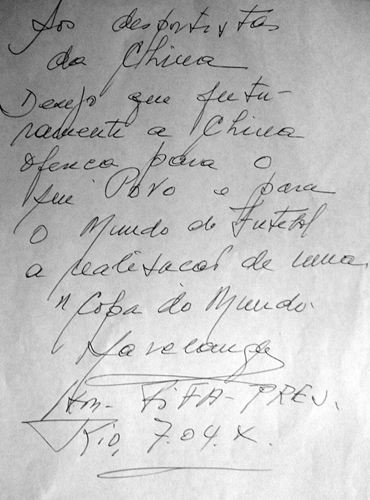 Aos desportistas
da China
Desejo que futu-
ramente a China
ofereca para o
seu Povo e para
o Mundo do Futebol
a realisacao de uma
"Copa do Mundo.
Havelange
Hon- FiFA-PRES.
Rio, 7.04.X.